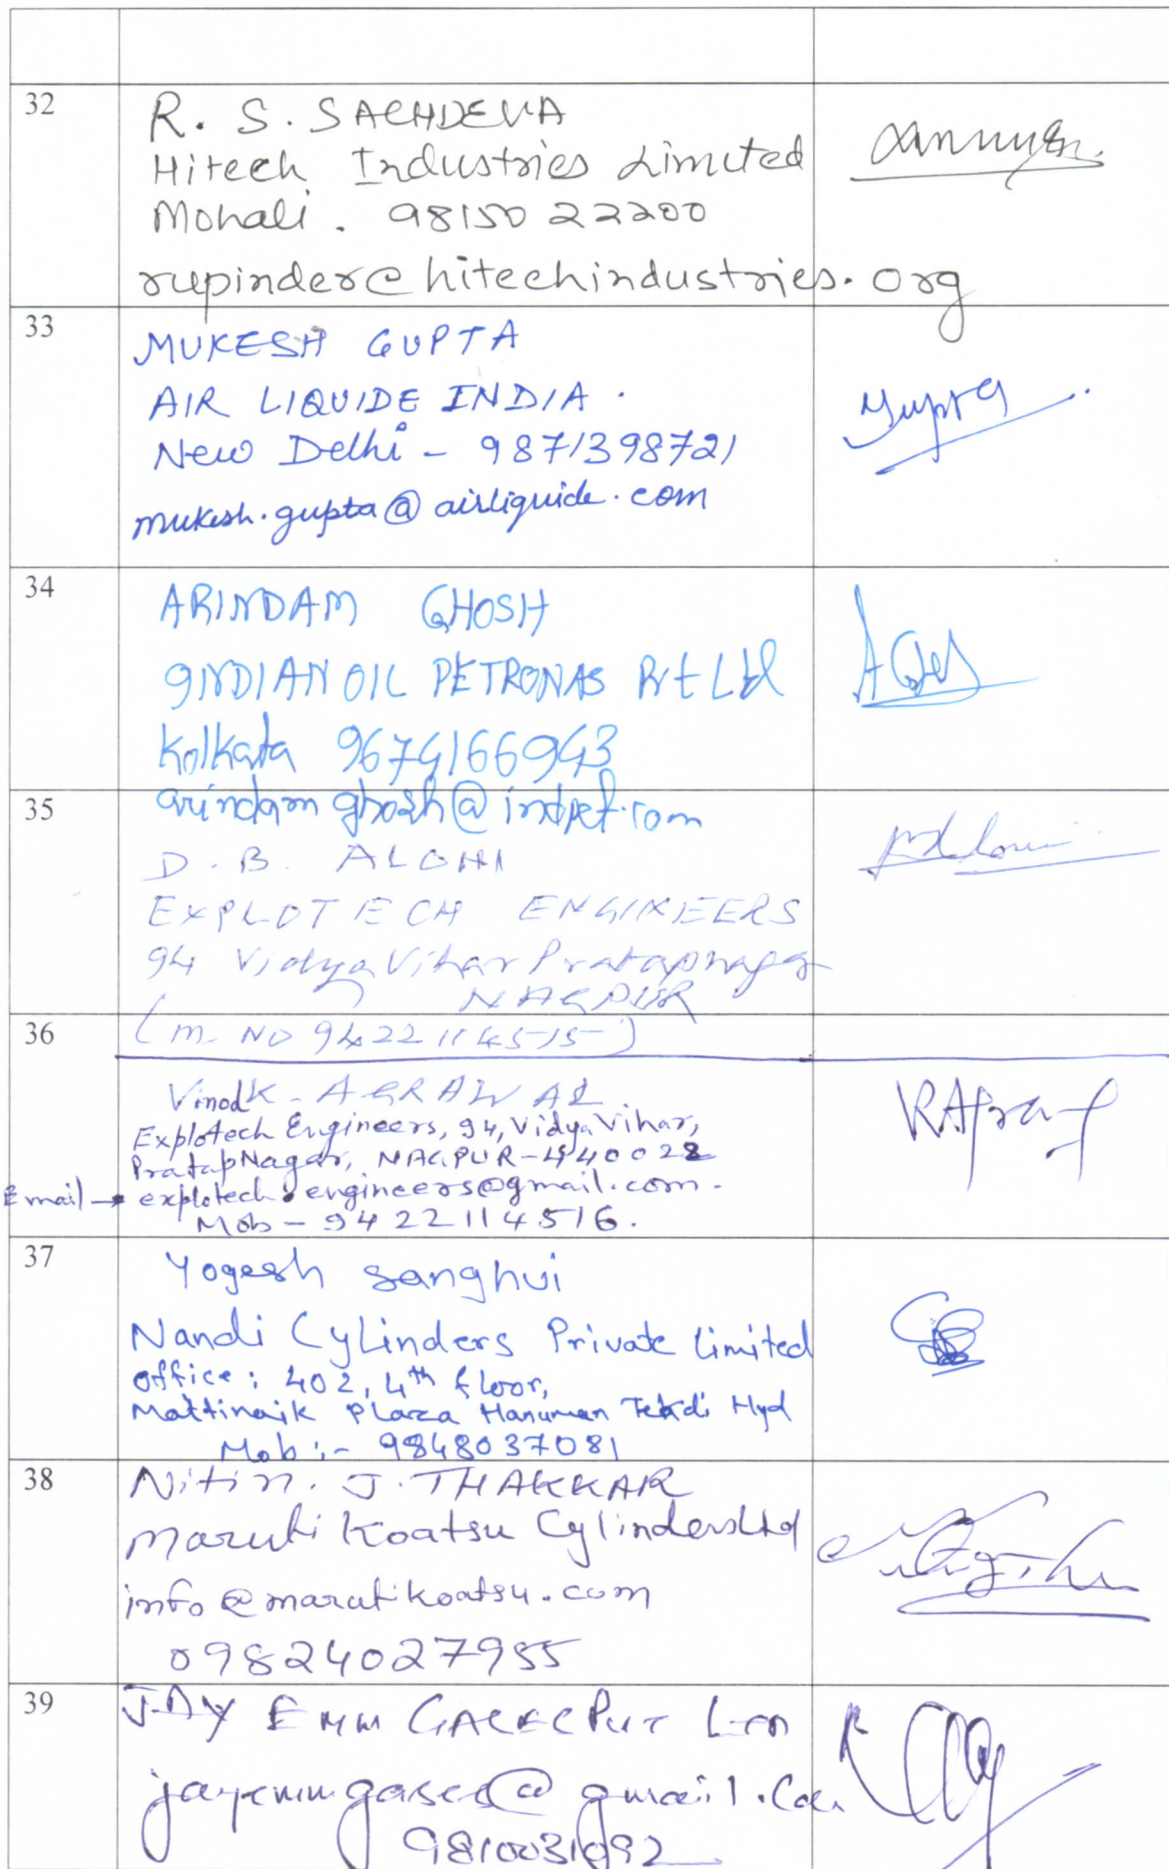 32
R. S. SACHDEVA
Hitech Industries Limited
Mohali. 98150 22200
rupinder@hitechindustries.org
33
MUKESH GUPTA
AIR LIQUIDE INDIA.
New Delhi - 9871398721
mukesh.gupta@airliquide.com
Gupta
34
ARINDAM GHOSH
INDIANOIL PETRONAS Pvt Ltd
Kolkata 9674166943
35
arindam ghosh@indpet.com
D. B. ALONI
EXPLOTECH ENGINEERS
94 Vidya Vihar Pratapnagar
NAGPUR
36
(M. NO 9422114515)
Vinod K. AGRAWAL
Explotech Engineers, 94, Vidya Vihar,
Pratap Nagar, NAGPUR-440022
Email → explotech.engineers@gmail.com.
Mob - 9422114516.
37
Yogesh Sanghvi
Nandi Cylinders Private Limited
office: 402, 4th floor,
Mattinaik Plaza Hanuman Tekdi Hyd
Mob:- 9848037081
38
Nitin. J. THAKKAR
Maruti Koatsu Cylinders Ltd
info@marutikoatsu.com
09824027955
39
JAY EMM GASES PVT LTD
jayemmgases@gmail.com
9810031092